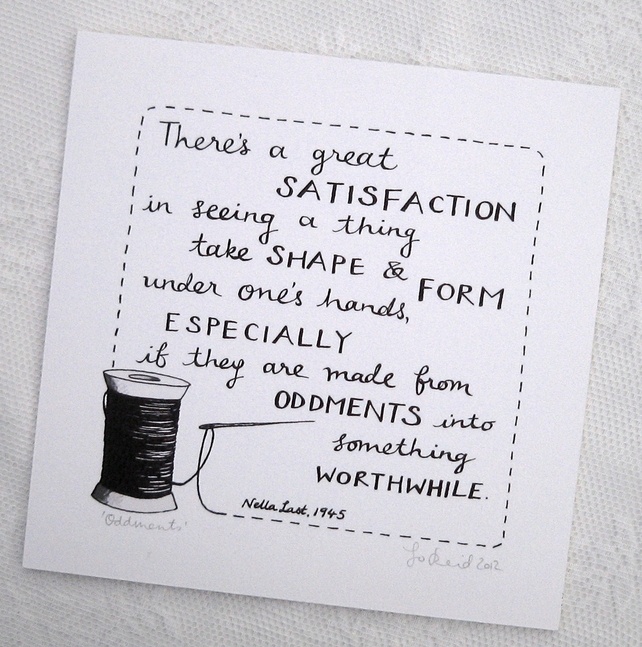 There's a great
SATISFACTION
in seeing a thing
take SHAPE & FORM
under one's hands,
ESPECIALLY
if they are made from
ODDMENTS into
something
WORTHWHILE.
Nella Last, 1945
'Oddments'
Jo Reid 2012